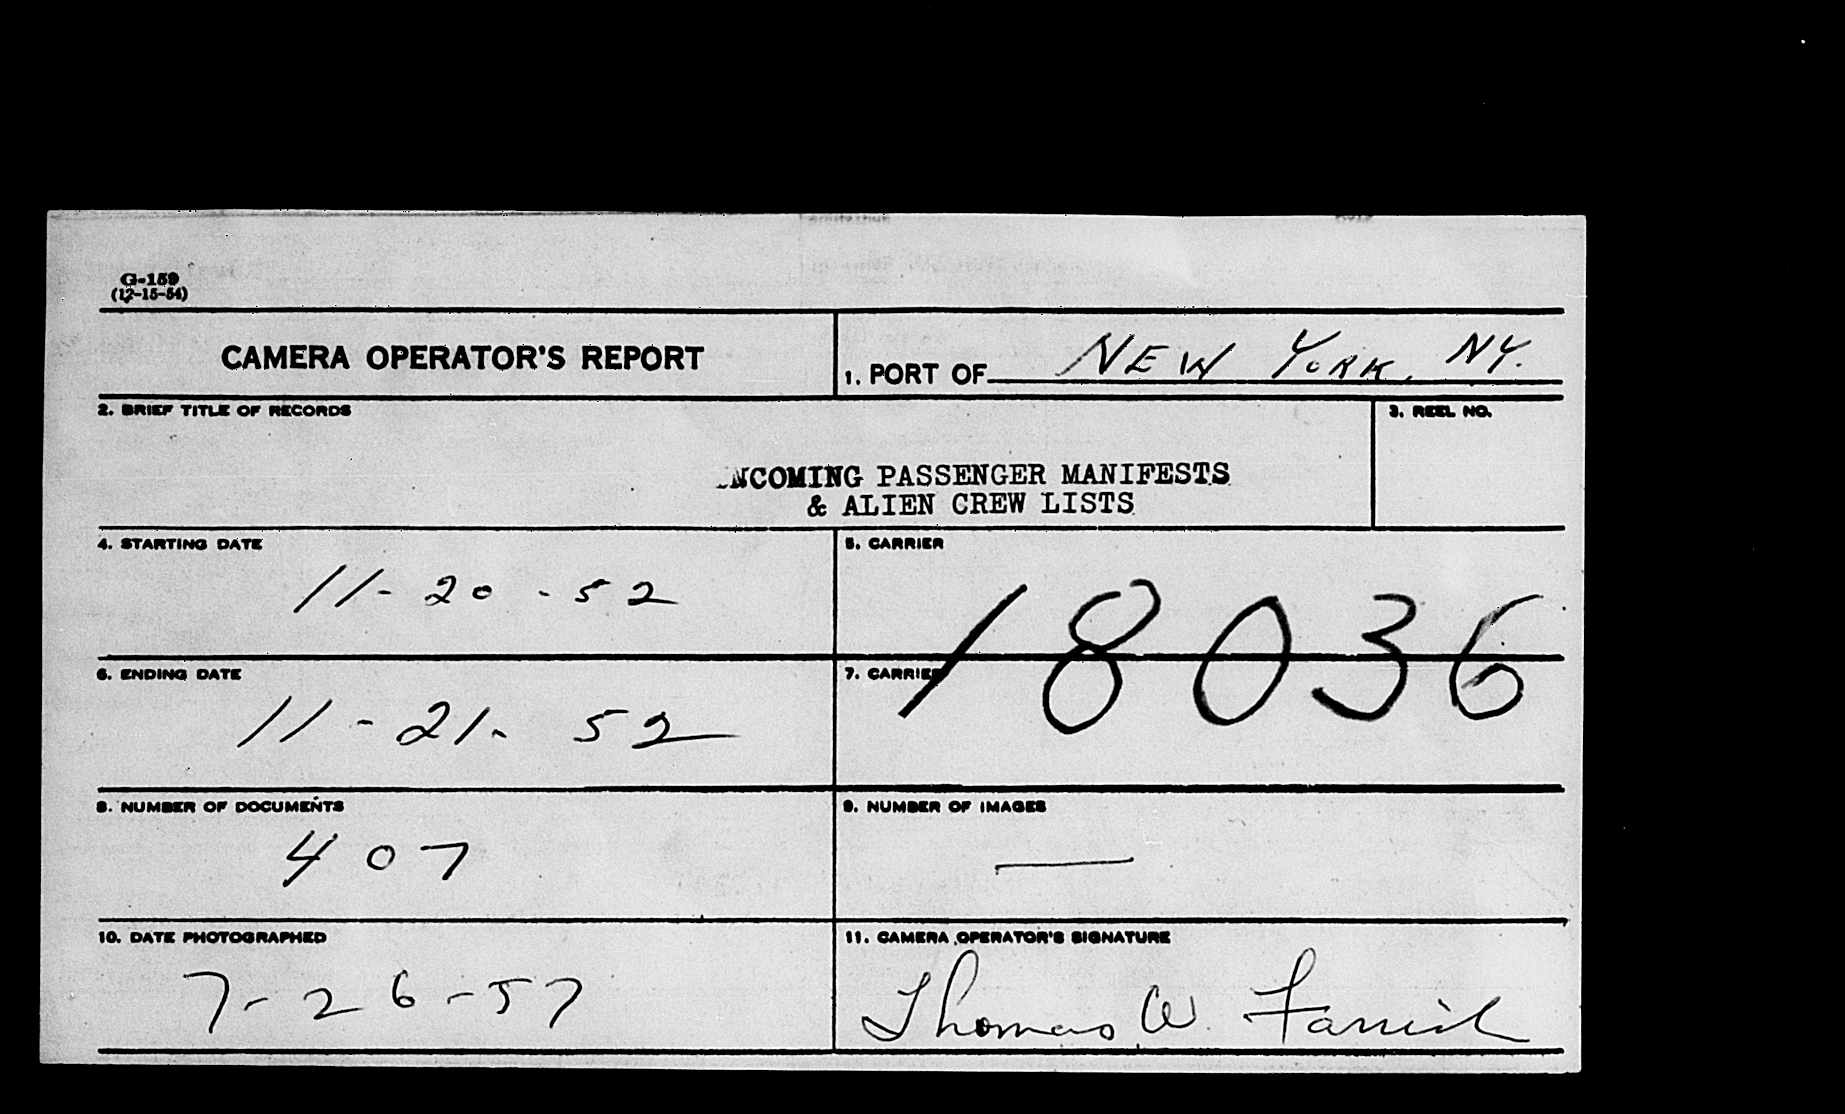 G-159
(12-15-54)
CAMERA OPERATOR'S REPORT
1. PORT OF NEW YORK, NY.
2. BRIEF TITLE OF RECORDS
3. REEL NO.
INCOMING PASSENGER MANIFESTS
& ALIEN CREW LISTS
4. STARTING DATE
11-20-52
5. CARRIER
18036
6. ENDING DATE
11-21-52
7. CARRIER
8. NUMBER OF DOCUMENTS
407
9. NUMBER OF IMAGES
—
10. DATE PHOTOGRAPHED
7-26-57
11. CAMERA OPERATOR'S SIGNATURE
Thomas W.